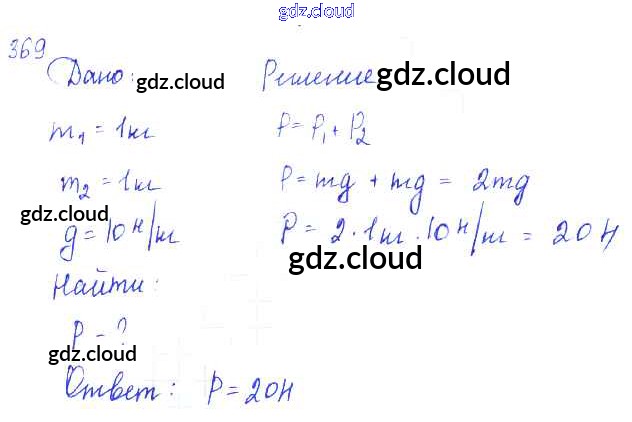 gdz.cloud
369
Дано: gdz.cloud
Решение gdz.cloud
m₁ = 1кг
P = P₁ + P₂
m₂ = 1кг
P = mg + mg = 2mg
gdz.cloud
g = 10 Н/кг
P = 2 · 1кг · 10 Н/кг = 20 Н
gdz.cloud
Найти:
P - ?
gdz.cloud
Ответ: P = 20Н
gdz.cloud